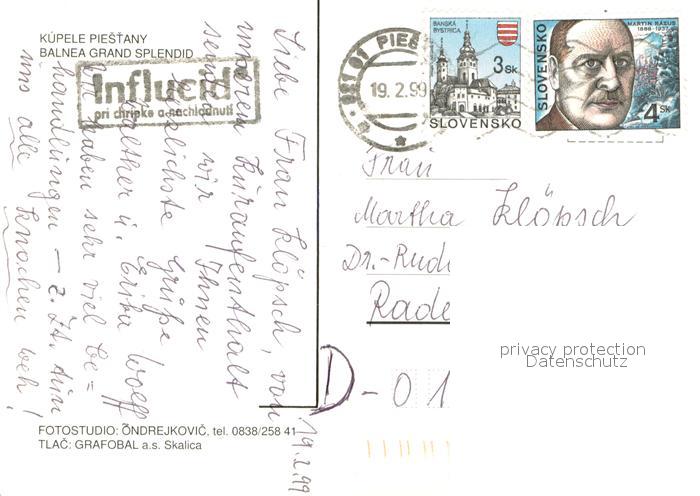 KÚPELE PIEŠŤANY
BALNEA GRAND SPLENDID
Influcid
pri chrípke a nachladnutí
Liebe Frau Klöpsch, von
unserem Kuraufenthalt
senden wir Ihnen
herzlichste Grüße
Walther u. Erika Wolff
Wir haben sehr viel Be=
handlungen – z. Zt. tun
uns alle Knochen weh!
19.2.99
FOTOSTUDIO: ONDREJKOVIČ, tel. 0838/258 41
TLAČ: GRAFOBAL a.s. Skalica
PIEŠ
19.2.99
BANSKÁ
BYSTRICA
3 Sk
SLOVENSKO
MARTIN RÁZUS
1888-1937
SLOVENSKO
4 Sk
Frau
Martha Klöpsch
Dr.-Rud
Rade
D-01
privacy protection
Datenschutz